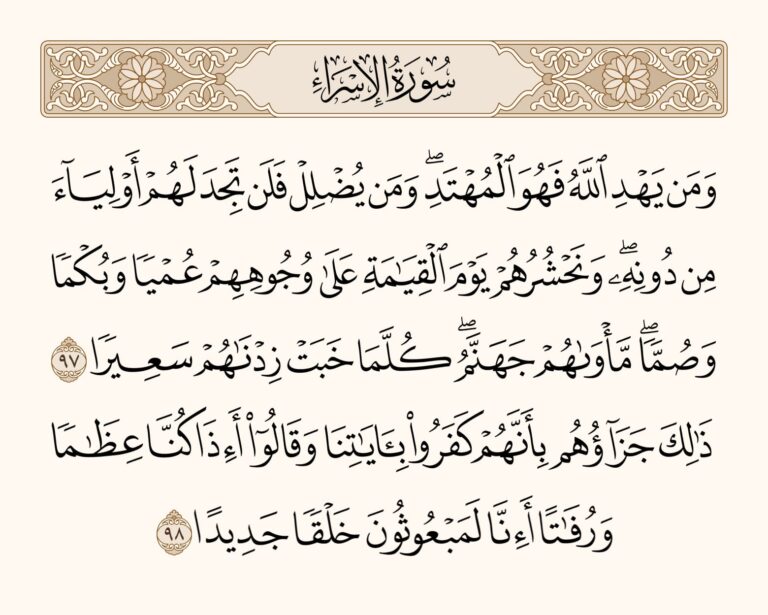 سُورَةُ الإِسْرَاءِ
وَمَن يَهْدِ ٱللَّهُ فَهُوَ ٱلْمُهْتَدِۖ وَمَن يُضْلِلْ فَلَن تَجِدَ لَهُمْ أَوْلِيَآءَ
مِن دُونِهِۦۖ وَنَحْشُرُهُمْ يَوْمَ ٱلْقِيَـٰمَةِ عَلَىٰ وُجُوهِهِمْ عُمْيًا وَبُكْمًا
وَصُمًّاۖ مَّأْوَىٰهُمْ جَهَنَّمُۖ كُلَّمَا خَبَتْ زِدْنَـٰهُمْ سَعِيرًا ٩٧
ذَٰلِكَ جَزَآؤُهُم بِأَنَّهُمْ كَفَرُوا۟ بِـَٔايَـٰتِنَا وَقَالُوٓا۟ أَءِذَا كُنَّا عِظَـٰمًا
وَرُفَـٰتًا أَءِنَّا لَمَبْعُوثُونَ خَلْقًا جَدِيدًا ٩٨